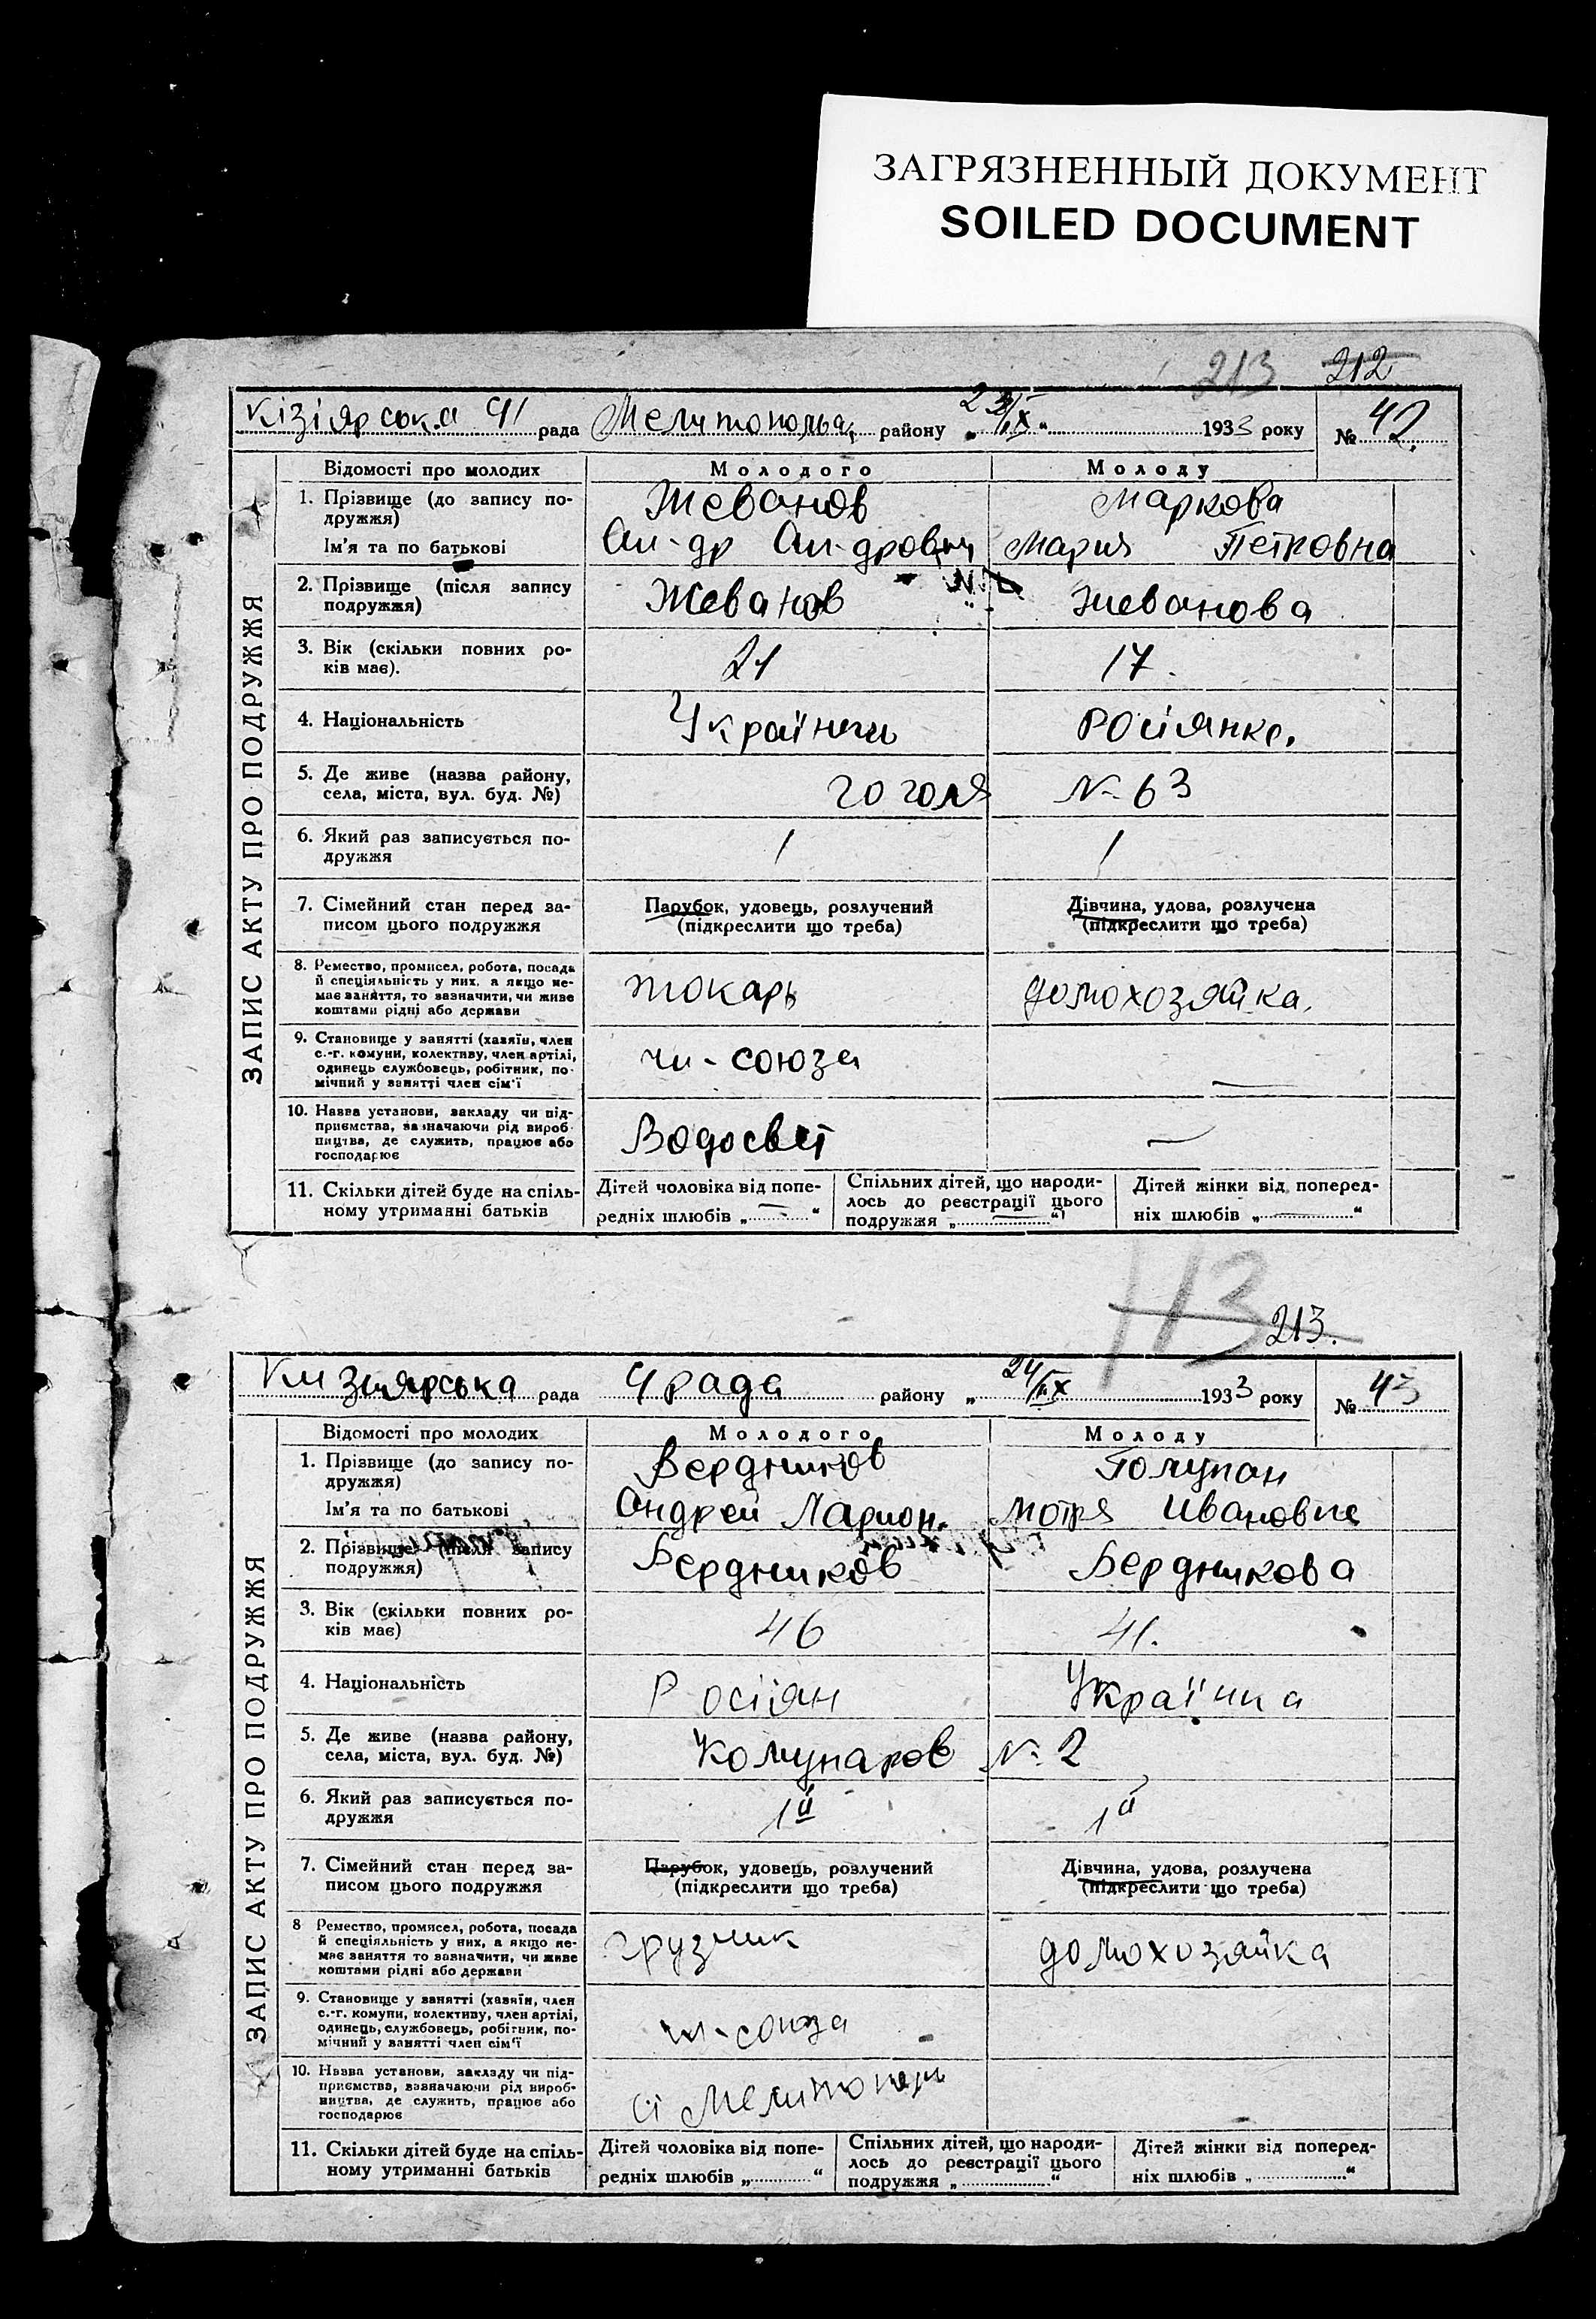 ЗАГРЯЗНЕННЫЙ ДОКУМЕНТ
SOILED DOCUMENT
213 212
Кізіярська рада Мелитопольск. району „23/IX“ 1933 року № 42.
ЗАПИС АКТУ ПРО ПОДРУЖЖЯ
Відомості про молодих Молодого Молоду
1. Прізвище (до запису по- Жеванов Маркова
дружжя)
Ім’я та по батькові Ал-др Ал-дрович Мария Петровна
2. Прізвище (після запису
подружжя) Жеванов Жеванова
3. Вік (скільки повних ро-
ків має). 21 17.
4. Національність Українець Росіянка.
5. Де живе (назва району,
села, міста, вул. буд. №) Гоголя № 63
6. Який раз записується по- 1 1
дружжя
7. Сімейний стан перед за- Парубок, удовець, розлучений Дівчина, удова, розлучена
писом цього подружжя (підкреслити що треба) (підкреслити що треба)
8. Ремество, промисел, робота, посада
й спеціяльність у них, а якщо не-
має заняття, то зазначити, чи живе токарь домохозяйка.
коштами рідні або держави
9. Становище у занятті (хазяїн, член
с.-г. комуни, колективу, член артілі, чл-союза —
одинець службовець, робітник, по-
мічний у занятті член сім’ї
10. Назва установи, закладу чи під-
приємства, зазначаючи рід вироб-
ництва, де служить, працює або Водосвет —
господарює
11. Скільки дітей буде на спіль- Дітей чоловіка від попе- Спільних дітей, що народи- Дітей жінки від поперед-
ному утриманні батьків редніх шлюбів „—“ лось до реєстрації цього ніх шлюбів „—“
подружжя „—“
113 213.
Кизиярська рада 4 рада району „24/IX 1933 року № 43
ЗАПИС АКТУ ПРО ПОДРУЖЖЯ
Відомості про молодих Молодого Молоду
1. Прізвище (до запису по- Бердников Полупан
дружжя)
Ім’я та по батькові Андрей Ларион. Мотря Ивановна
2. Прізвище (після запису
подружжя) Бердников Бердникова
3. Вік (скільки повних ро-
ків має) 46 41.
4. Національність Росіян Українка
5. Де живе (назва району,
села, міста, вул. буд. №) Комунаров № 2
6. Який раз записується по- 1й 1й
дружжя
7. Сімейний стан перед за- Парубок, удовець, розлучений Дівчина, удова, розлучена
писом цього подружжя (підкреслити що треба) (підкреслити що треба)
8 Ремество, промисел, робота, посада
й спеціяльність у них, а якщо не- грузчик домохозяйка
має заняття то зазначити, чи живе
коштами рідні або держави
9. Становище у занятті (хазяїн, член
с.-г. комуни, колективу, член артілі,
одинець, службовець, робітник, по- чл-союза
мічний у занятті член сім’ї
10. Назва установи, закладу чи під-
приємства, зазначаючи рід вироб-
ництва, де служить, працює або ст Мелитополь
господарює
11. Скільки дітей буде на спіль- Дітей чоловіка від попе- Спільних дітей, що народи- Дітей жінки від поперед-
ному утриманні батьків редніх шлюбів „ “ лось до реєстрації цього ніх шлюбів „ “
подружжя „ “